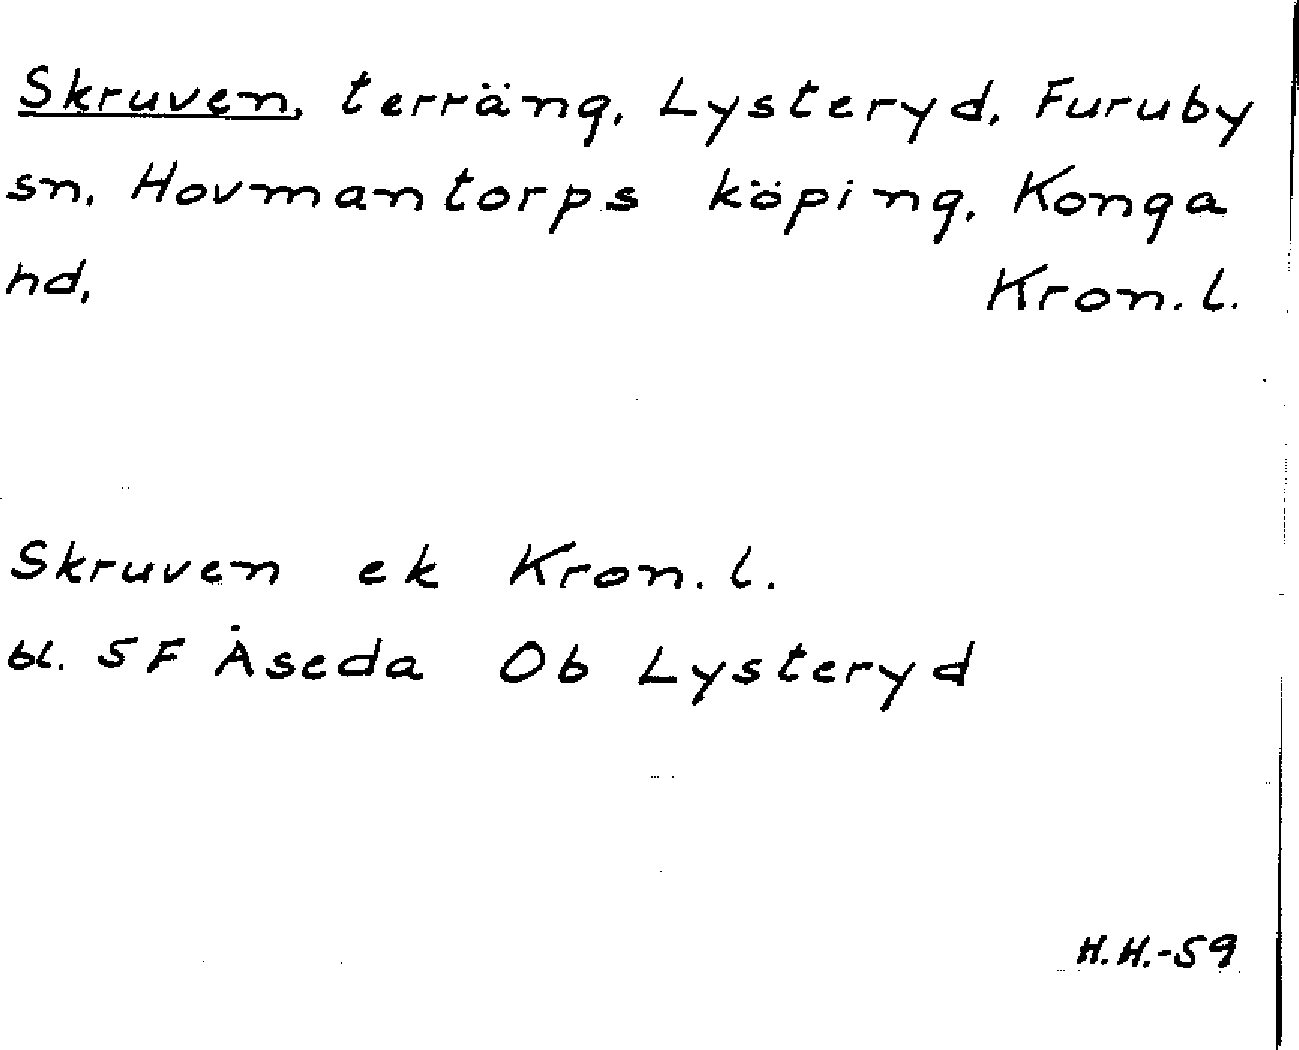 Skruven, terräng, Lysteryd, Furuby
sn, Hovmantorps köping, Konga
hd, Kron. l.
Skruven ek Kron. l.
bl. 5F Åseda Ob Lysteryd
H.H.-59